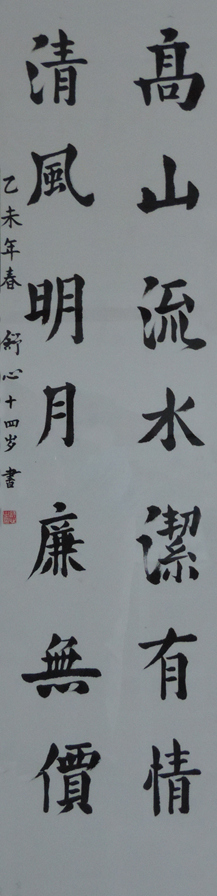 高山流水潔有情
清風明月廉無價
乙未年春 舒心十四岁書